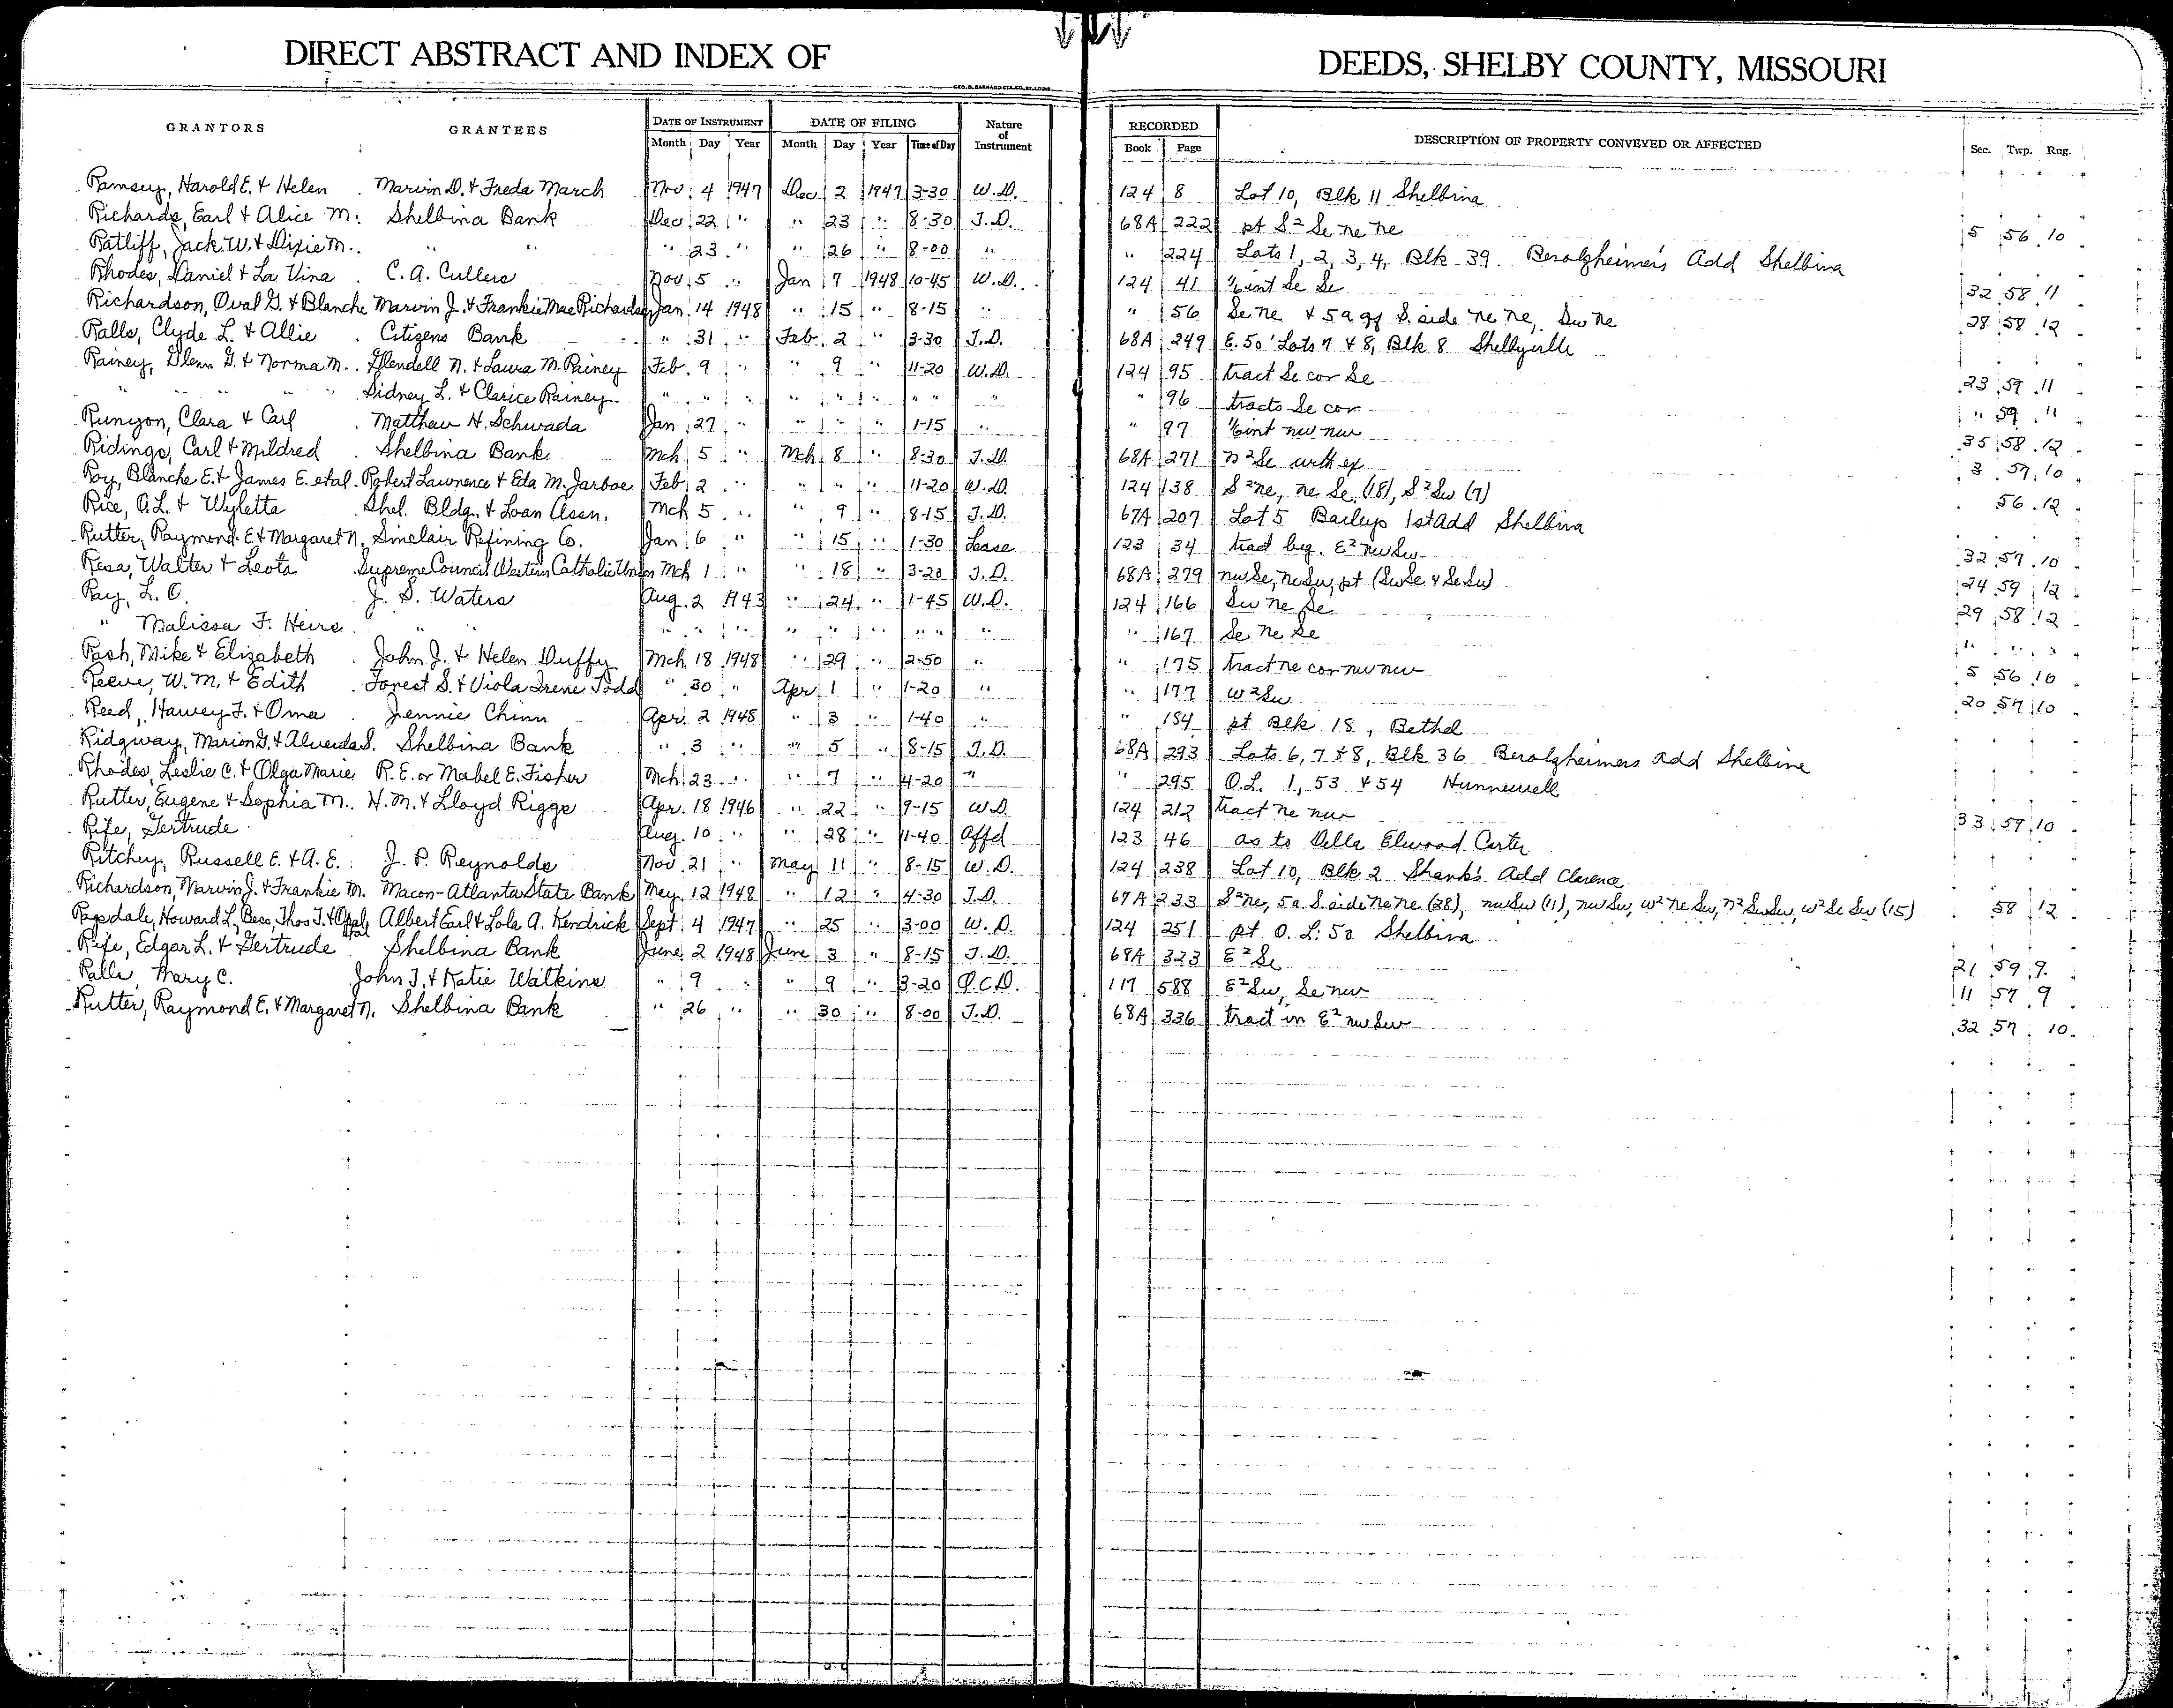 DIRECT ABSTRACT AND INDEX OF DEEDS, SHELBY COUNTY, MISSOURI
GEO. D. BARNARD STA. CO. ST. LOUIS
GRANTORS GRANTEES DATE OF INSTRUMENT DATE OF FILING Nature of Instrument RECORDED DESCRIPTION OF PROPERTY CONVEYED OR AFFECTED Sec. Twp. Rng.
Month Day Year Month Day Year Time of Day Book Page
Ramsey, Harold E. & Helen Marvin D. & Freda March Nov. 4 1947 Dec 2 1947 3-30 W.D. 124 8 Lot 10, Blk 11 Shelbina
Richards, Earl & Alice M. Shelbina Bank Dec 22 " " 23 " 8-30 T.D. 68A 222 pt S² Se ne ne 5 56 10
Ratliff, Jack W. & Dixie M. " " " 23 " " 26 " 8-00 " " 224 Lots 1, 2, 3, 4, Blk 39 Berolzheimer's Add Shelbina
Rhodes, Daniel & La Vina C. A. Cullers Nov. 5 " Jan 7 1948 10-45 W.D. 124 41 1/6 int Se Se 32 58 11
Richardson, Oval G. & Blanche Marvin J. & Frankie Mae Richardson Jan. 14 1948 " 15 " 8-15 " " 56 Se ne & 5a off S. side ne ne, Sw ne 28 58 12
Ralls, Clyde L. & Allie Citizens Bank " 31 " Feb. 2 " 3-30 T.D. 68A 249 E. 50' Lots 7 & 8, Blk 8 Shelbyville
Rainey, Glenn G. & Norma M. Glendell N. & Laura M. Rainey Feb. 9 " " 9 " 11-20 W.D. 124 95 tract Se cor Se 23 59 11
" " " " Sidney L. & Clarice Rainey " " " " " " " " " " 96 tracts Se cor " 59 11
Runyon, Clara & Carl Matthew H. Schwada Jan 27 " " " " 1-15 " " 97 1/6 int nw nw 35 58 12
Ridings, Carl & Mildred Shelbina Bank Mch 5 " Mch 8 " 8-30 T.D. 68A 271 n² Se with ex 3 57 10
Roy, Blanche E. & James E. etal Robert Lawrence & Eda M. Jarboe Feb 2 " " " " 11-20 W.D. 124 138 S² ne, ne Se (18), S² Sw (7) 56 12
Rice, O.L. & Wyletta Shel. Bldg. & Loan Assn. Mch 5 " " 9 " 8-15 T.D. 67A 207 Lot 5 Baileys 1st Add Shelbina
Rutter, Raymond E & Margaret N. Sinclair Refining Co. Jan 6 " " 15 " 1-30 Lease 123 34 tract beg. E² nw Sw 32 57 10
Resa, Walter & Leota Supreme Council Western Catholic Union Mch 1 " " 18 " 3-20 T.D. 68A 279 nw Se, ne Sw, pt (Sw Se & Se Sw) 24 59 12
Ray, L. O. J. S. Waters Aug. 2 1943 " 24 " 1-45 W.D. 124 166 Sw ne Se 29 58 12
" Malissa F. Heirs " " " " " " " " " " " 167 Se ne Se " " "
Rash, Mike & Elizabeth John J. & Helen Duffy Mch 18 1948 " 29 " 2-50 " " 175 tract ne cor nw nw 5 56 10
Reeve, W. M. & Edith Forest S. & Viola Irene Todd " 30 " Apr 1 " 1-20 " " 177 w² Sw 20 57 10
Reed, Harvey F. & Oma Jennie Chinn Apr. 2 1948 " 3 " 1-40 " " 184 pt Blk 18, Bethel
Ridgway, Marion G. & Alverda S. Shelbina Bank " 3 " " 5 " 8-15 T.D. 68A 293 Lots 6, 7 & 8, Blk 36 Berolzheimers Add Shelbina
Rhodes, Leslie C. & Olga Marie R. E. or Mabel E. Fisher Mch 23 " " 7 " 4-20 " " 295 O.L. 1, 53 & 54 Hunnewell
Rutter, Eugene & Sophia M. H. M. & Lloyd Riggs Apr. 18 1946 " 22 " 9-15 W.D. 124 212 tract ne nw 33 57 10
Rife, Gertrude Aug. 10 " " 28 " 11-40 Affd 123 46 as to Della Elwood Carter
Ritchy, Russell E. & A. E. J. P. Reynolds Nov. 21 " May 11 " 8-15 W.D. 124 238 Lot 10, Blk 2 Shanks Add Clarence
Richardson, Marvin J. & Frankie M. Macon-Atlanta State Bank May 12 1948 " 12 " 4-30 T.D. 67A 233 S² ne, 5a S. side ne ne (28), nw Sw (11), nw Sw, w² ne Sw, n² Sw Sw, w² Se Sw (15) 58 12
Ragsdale, Howard L., Bess, Thos T. & Opal, etal Albert Earl & Lola A. Kendrick Sept. 4 1947 " 25 " 3-00 W.D. 124 251 pt O. L. 50 Shelbina
Rife, Edgar L. & Gertrude Shelbina Bank June 2 1948 June 3 " 8-15 T.D. 68A 323 E² Se 21 59 9
Ralls, Mary C. John T. & Katie Watkins " 9 " " 9 " 3-20 Q.C.D. 117 588 E² Sw, Se nw 11 57 9
Rutter, Raymond E. & Margaret N. Shelbina Bank " 26 " " 30 " 8-00 T.D. 68A 336 tract in E² nw Sw 32 57 10